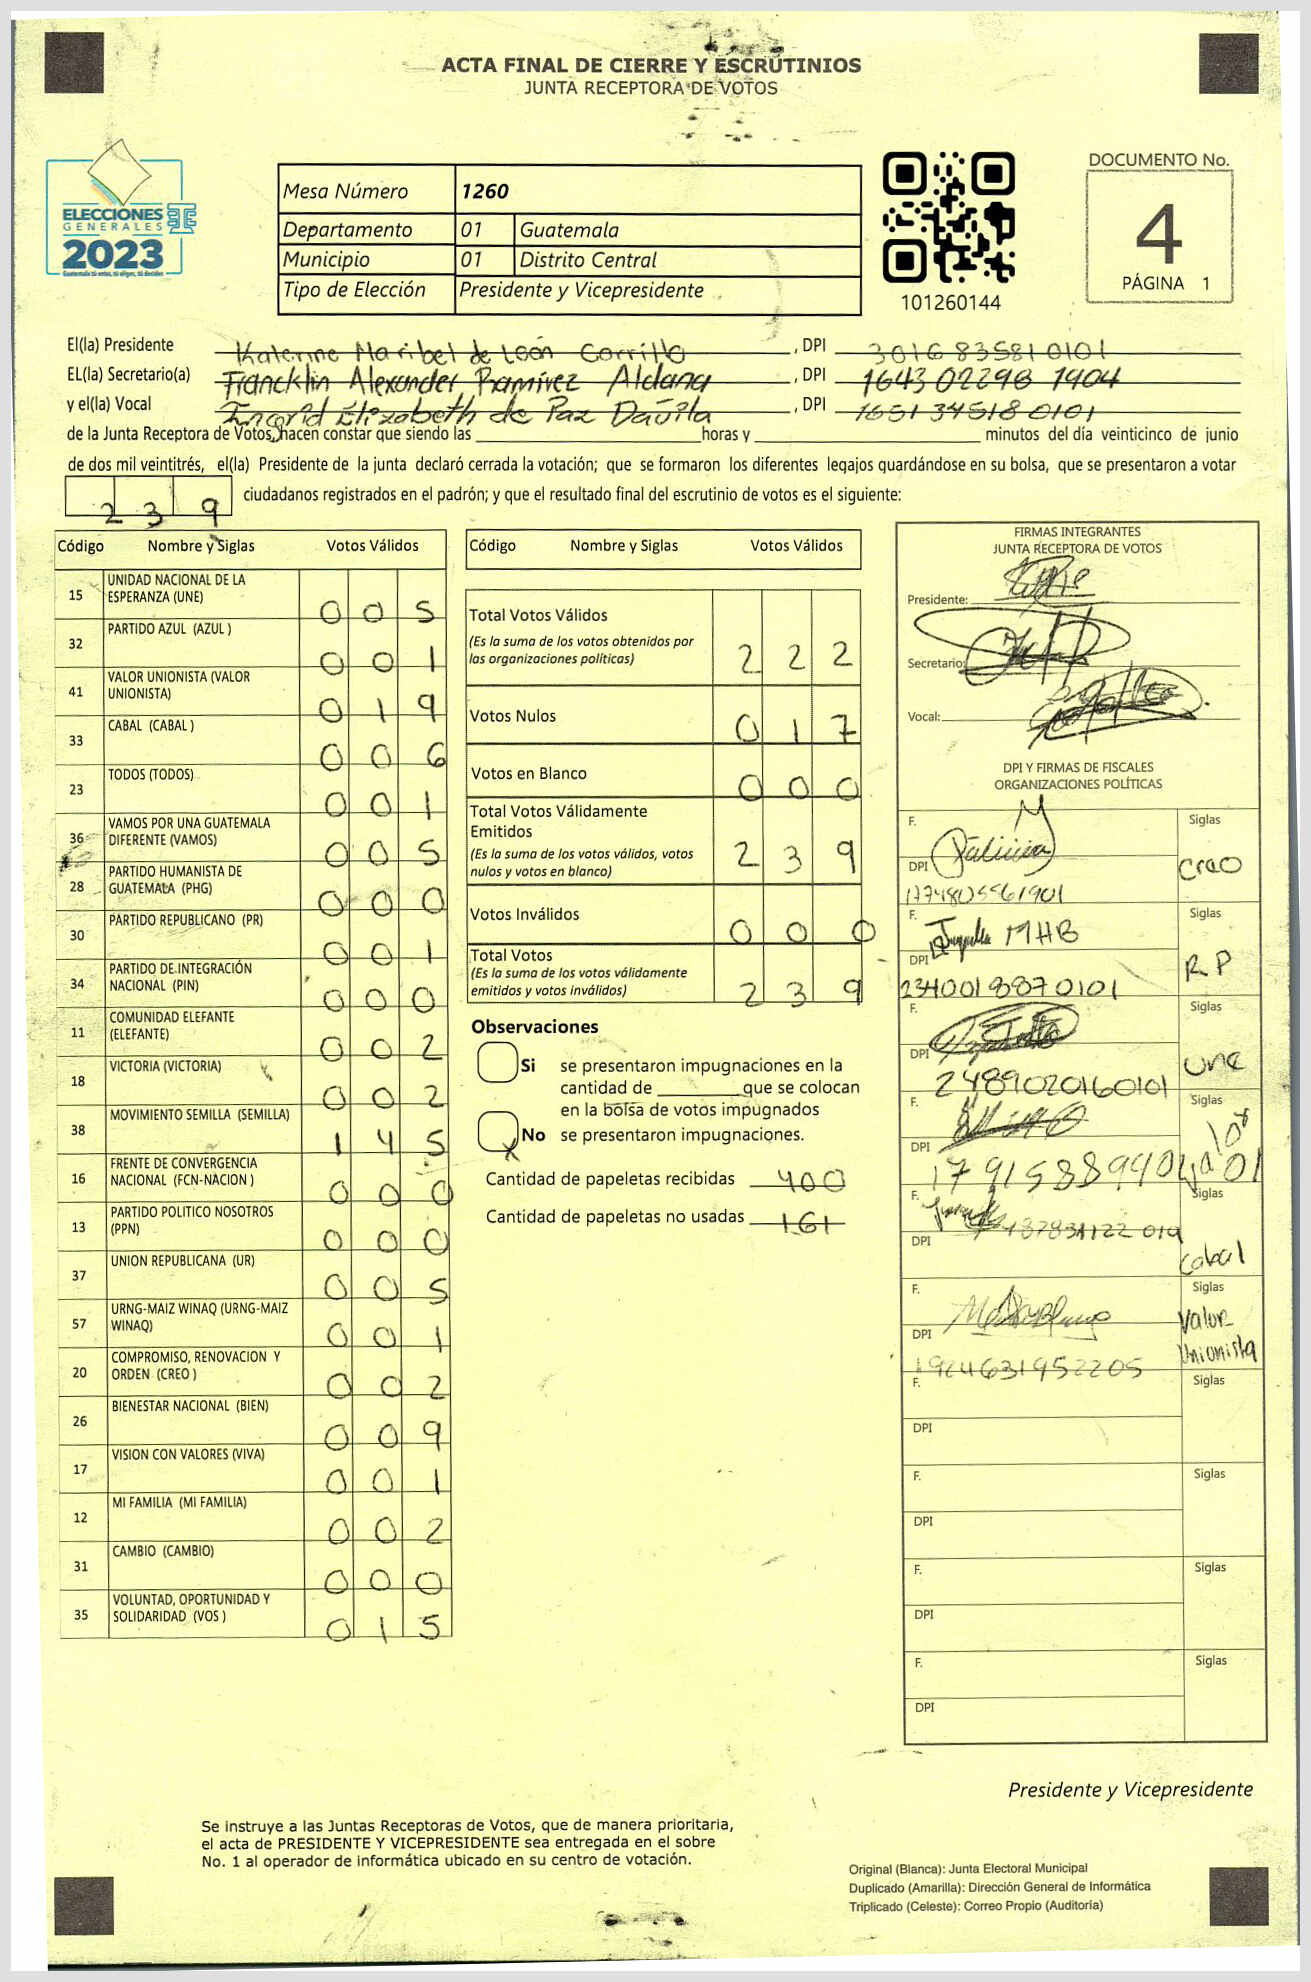 ACTA FINAL DE CIERRE Y ESCRUTINIOS
JUNTA RECEPTORA DE VOTOS
ELECCIONES
GENERALES
2023
Guatemala tú votas, tú eliges, tú decides
Mesa Número 1260
Departamento 01 Guatemala
Municipio 01 Distrito Central
Tipo de Elección Presidente y Vicepresidente
101260144
DOCUMENTO No.
4
PÁGINA 1
El(la) Presidente Katerine Maribel de León Carrillo , DPI 3016835810101
EL(la) Secretario(a) Francklin Alexander Ramírez Aldana , DPI 1643 02298 1904
y el(la) Vocal Ingrid Elizabeth de Paz Dávila , DPI 1651345180101
de la Junta Receptora de Votos, hacen constar que siendo las horas y minutos del día veinticinco de junio
de dos mil veintitrés, el(la) Presidente de la junta declaró cerrada la votación; que se formaron los diferentes legajos guardándose en su bolsa, que se presentaron a votar
2 3 9 ciudadanos registrados en el padrón; y que el resultado final del escrutinio de votos es el siguiente:
Código Nombre y Siglas Votos Válidos
15 UNIDAD NACIONAL DE LA
ESPERANZA (UNE) 0 0 5
32 PARTIDO AZUL (AZUL ) 0 0 1
41 VALOR UNIONISTA (VALOR
UNIONISTA) 0 1 9
33 CABAL (CABAL ) 0 0 6
23 TODOS (TODOS) 0 0 1
36 VAMOS POR UNA GUATEMALA
DIFERENTE (VAMOS) 0 0 5
28 PARTIDO HUMANISTA DE
GUATEMALA (PHG) 0 0 0
30 PARTIDO REPUBLICANO (PR) 0 0 1
34 PARTIDO DE INTEGRACIÓN
NACIONAL (PIN) 0 0 0
11 COMUNIDAD ELEFANTE
(ELEFANTE) 0 0 2
18 VICTORIA (VICTORIA) 0 0 2
38 MOVIMIENTO SEMILLA (SEMILLA) 1 4 5
16 FRENTE DE CONVERGENCIA
NACIONAL (FCN-NACION ) 0 0 0
13 PARTIDO POLITICO NOSOTROS
(PPN) 0 0 0
37 UNION REPUBLICANA (UR) 0 0 5
57 URNG-MAIZ WINAQ (URNG-MAIZ
WINAQ) 0 0 1
20 COMPROMISO, RENOVACION Y
ORDEN (CREO ) 0 0 2
26 BIENESTAR NACIONAL (BIEN) 0 0 9
17 VISION CON VALORES (VIVA) 0 0 1
12 MI FAMILIA (MI FAMILIA) 0 0 2
31 CAMBIO (CAMBIO) 0 0 0
35 VOLUNTAD, OPORTUNIDAD Y
SOLIDARIDAD (VOS ) 0 1 5
Código Nombre y Siglas Votos Válidos
Total Votos Válidos
(Es la suma de los votos obtenidos por
las organizaciones políticas) 2 2 2
Votos Nulos 0 1 7
Votos en Blanco 0 0 0
Total Votos Válidamente
Emitidos
(Es la suma de los votos válidos, votos
nulos y votos en blanco) 2 3 9
Votos Inválidos 0 0 0
Total Votos
(Es la suma de los votos válidamente
emitidos y votos inválidos) 2 3 9
Observaciones
Si se presentaron impugnaciones en la
cantidad de que se colocan
en la bolsa de votos impugnados
X No se presentaron impugnaciones.
Cantidad de papeletas recibidas 400
Cantidad de papeletas no usadas 161
FIRMAS INTEGRANTES
JUNTA RECEPTORA DE VOTOS
Presidente:
Secretario:
Vocal:
DPI Y FIRMAS DE FISCALES
ORGANIZACIONES POLÍTICAS
F. Siglas
DPI Creo
1774805561901
F. MHB Siglas
DPI R P
2340018870101
F. Siglas
DPI une
2489020160101
F. Siglas
DPI
F. Siglas
DPI Cabal
F. Siglas
DPI Valor
Unionista
1924631952205
F. Siglas
DPI
F. Siglas
DPI
F. Siglas
DPI
F. Siglas
DPI
Presidente y Vicepresidente
Se instruye a las Juntas Receptoras de Votos, que de manera prioritaria,
el acta de PRESIDENTE Y VICEPRESIDENTE sea entregada en el sobre
No. 1 al operador de informática ubicado en su centro de votación.
Original (Blanca): Junta Electoral Municipal
Duplicado (Amarilla): Dirección General de Informática
Triplicado (Celeste): Correo Propio (Auditoría)